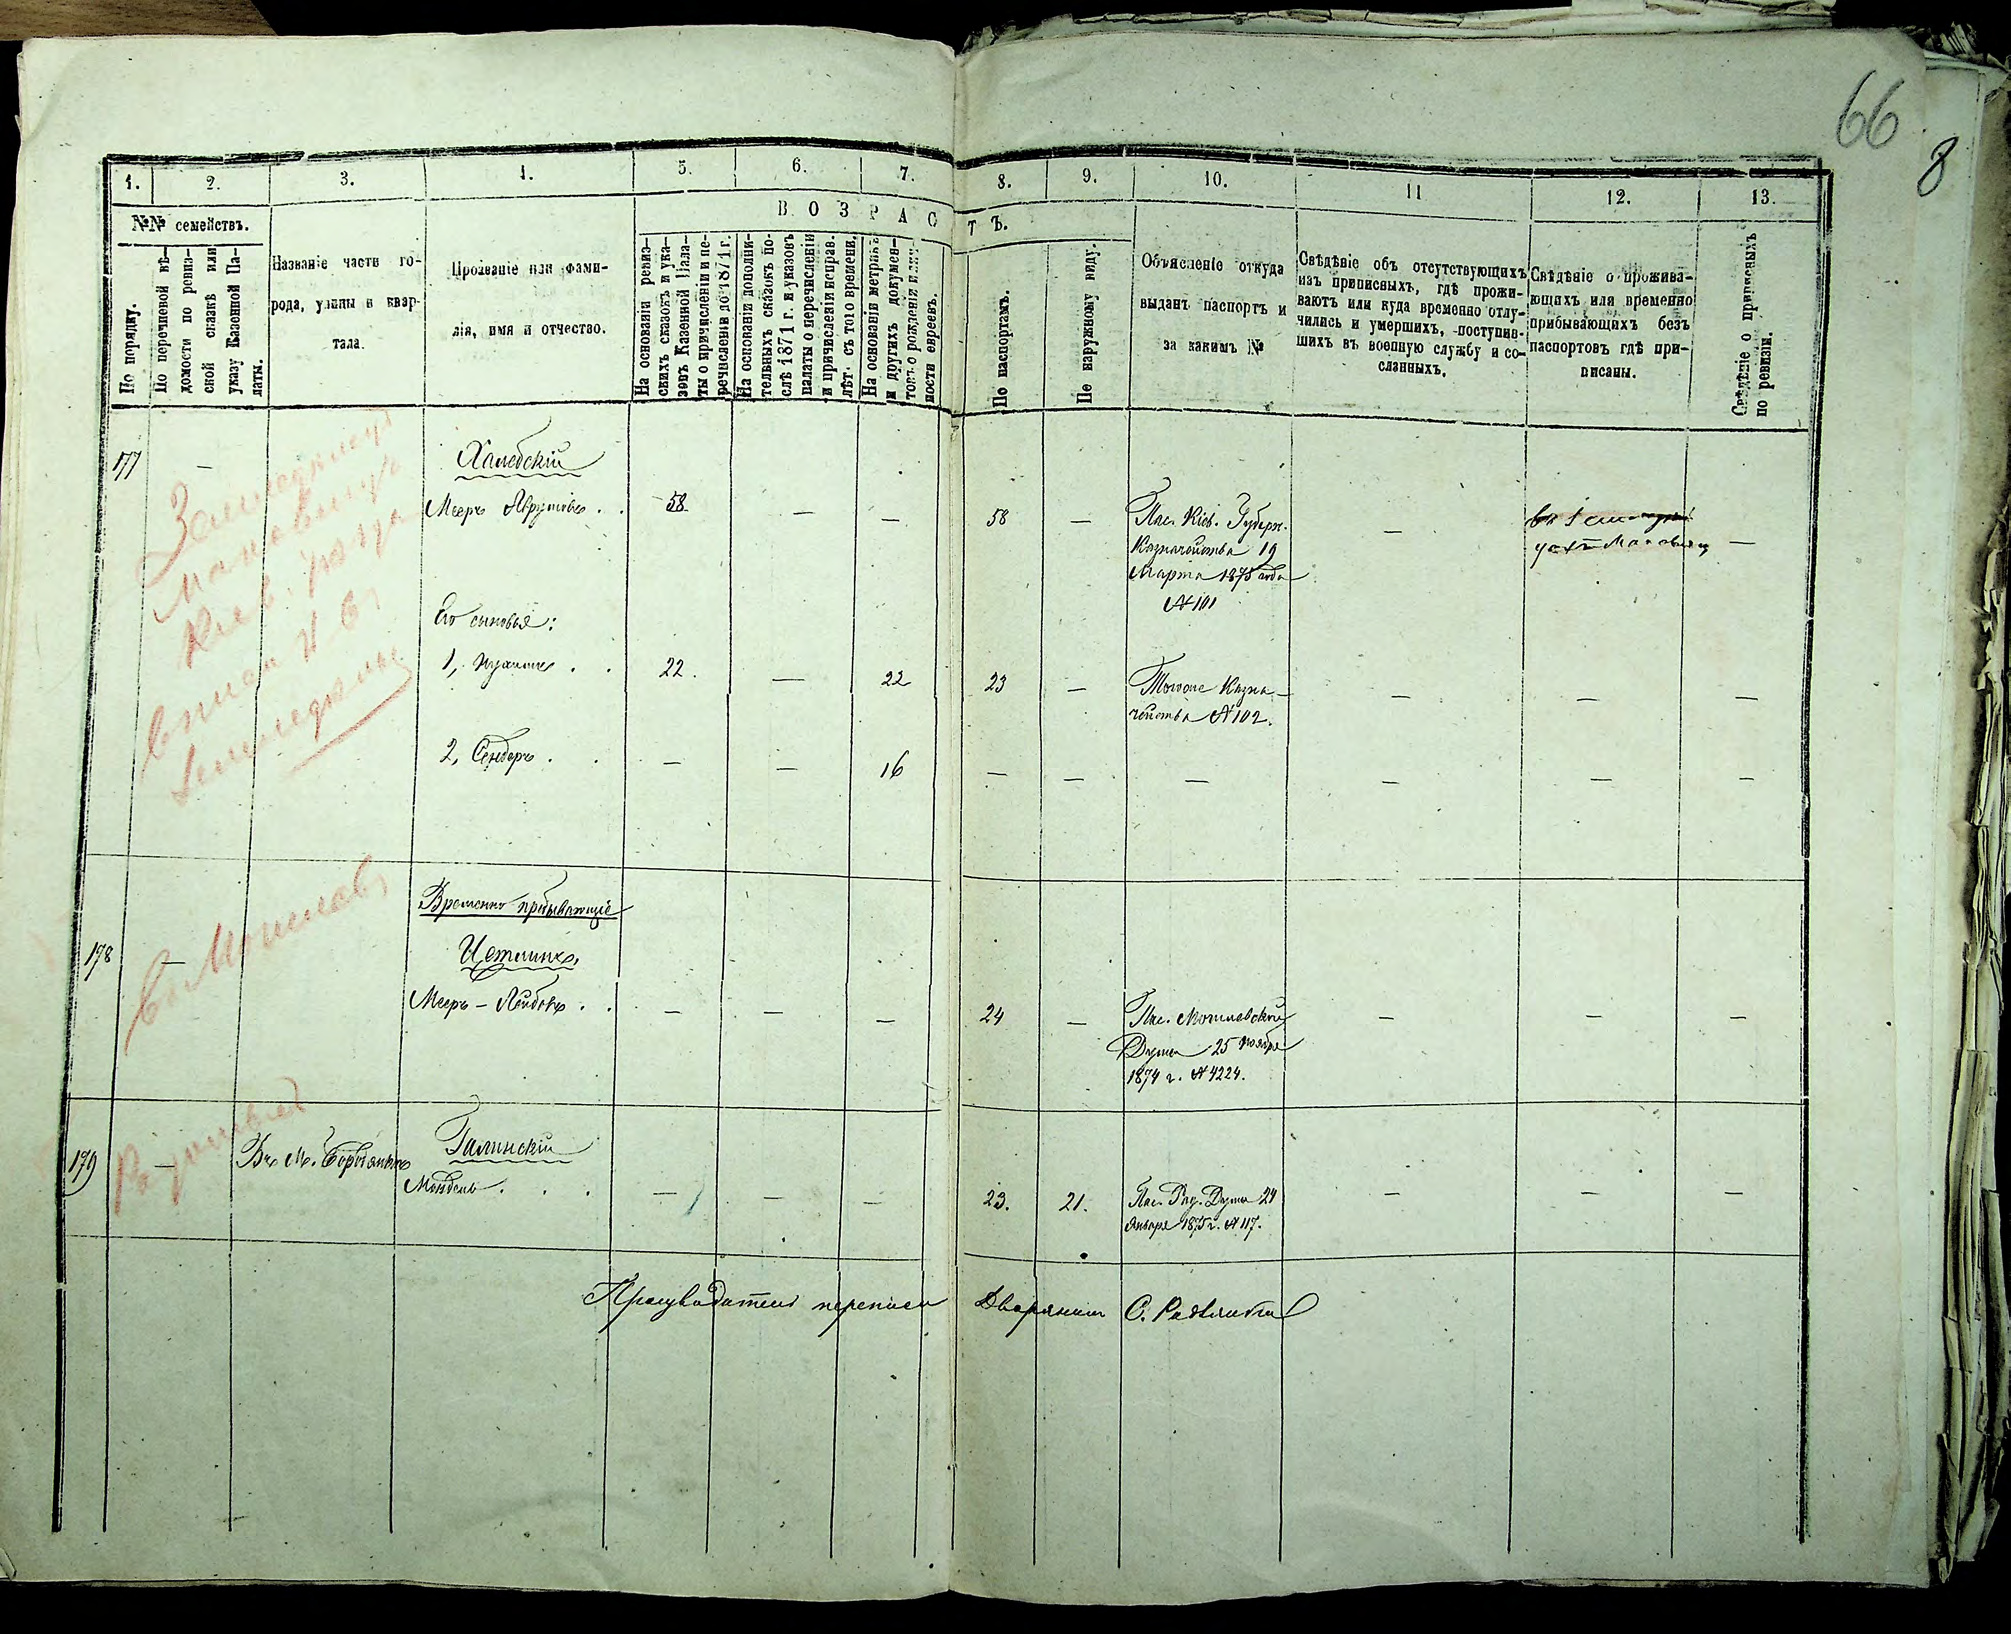 66
8
1. 2. 3. 4. 5. 6. 7. 8. 9. 10. 11 12. 13.
№№ семействъ.
По порядку.
По перечневой вѣ-
домости по ревиз-
ской сказкѣ или
указу Казенной Па-
латы.
Названіе части го-
рода, улицы и квар-
тала.
Прозваніе или фами-
лія, имя и отчество.
ВОЗРАСТЪ.
На основаніи ревиз-
скихъ сказокъ и ука-
зовъ Казенной Пала-
ты о причисленіи и пе-
речисленіи до 1871 г.
На основаніи дополни-
тельныхъ сказокъ по-
слѣ 1871 г. и указовъ
палаты о перечисленіи
и причисленіи исправ.
лѣт. съ того времени.
На основаніи метрикъ
и другихъ докумен-
товъ о рожденіи
ности евреевъ.
По паспортамъ.
По наружному виду.
Объясненіе откуда
выданъ паспортъ и
за какимъ №
Свѣдѣніе объ отсутствующихъ
изъ приписныхъ, гдѣ прожи-
ваютъ или куда временно отлу-
чились и умершихъ, поступив-
шихъ въ военную службу и со-
сланныхъ.
Свѣдѣніе о прожива-
ющихъ или временно
прибывающихъ безъ
паспортовъ гдѣ при-
писаны.
Свѣдѣніе о приписныхъ
по ревизіи.
177 —
Халебскій
Мееръ . . 58 — — 58 — Пас. Кіев. Губерн.
Казначейства 19
Марта 1875 года
№ 101
— —
Его сыновья:
1, . . 22. — 22 23 — Тогоже Казна-
чейства № 102. — — —
2, Сендеръ . . — — 16 — — — — — —
Кіев.
Временно прибывающіе
178 —
Цетлинъ
Мееръ - Лейбовъ . . — — — 24 — Пас. Могилевской
Думы 25 Ноября
1874 г. № 4224.
— — —
въ Могилевъ
179 — Въ М. Бородянкѣ
Галинскій
Мендель . . . — — — 23. 21. Пас. Рад. Думы 24
Января 1875 г. № 117.
— — —
Производатель переписи Дворянинъ С.